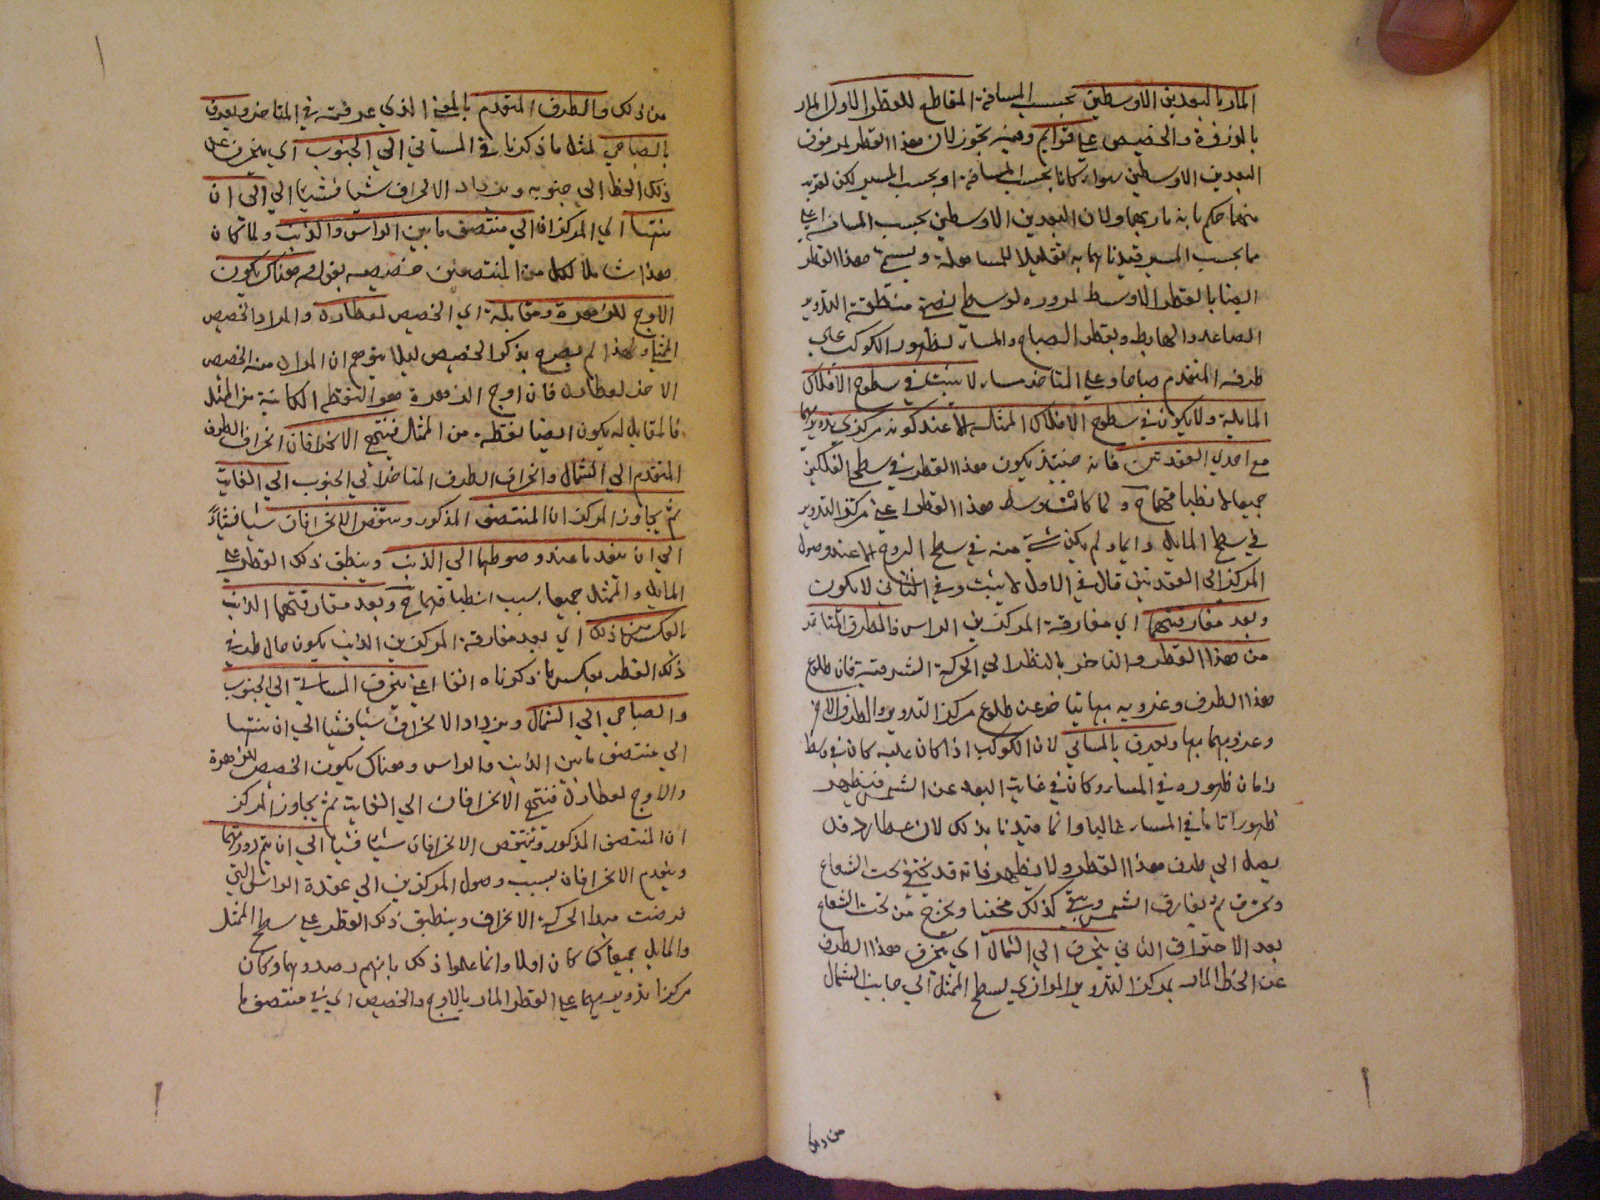 المار بالبعدين الاوسطين بحسب المسافة المقاطع للقطر الاول المار
بالذروة والحضيض على قوايم وفيه تجوز لان هذا القطر لم يمر
البعدين الاوسطين سواء كانا بحسب المسافة او بحسب المسير لكن لقربه
منهما حكم بانه مار بهما ولان البعدين الاوسطين بحسب المسافة
ما بحسب المسير قيدنا بها به تقليلا للمساهلة ويسمى هذا القطر
ايضا بالقطر الاوسط لمروره لوسطي نصفي منطقة التدوير
الصاعد والهابط وبقطر الصباح والمساء لظهور الكوكب على
طرفه المتقدم صباحا وعلى المتاخر مساء لا يثبت في سطوح الافلاك
المايلة ولا يكون في سطوح الافلاك الممثلة الا عند كون مركزي تدويرهما
مع احدي العقدتين فانه حينئذ يكون هذا القطر في سطح الفلكين
جميعا لانطباقهما ح ولما كان وسط هذا القطر اعني مركز التدوير
في سطح المايل دايما ولم يكن شئ منه في سطح البروج الا عند وصول
المركز الى العقدتين قال في الاول لا يثبت وفي الثاني لا يكون
وبعد مفارقتهما اي مفارقة المركزين الراس فالطرف المتاخر
من هذا القطر والتاخر بالنظر الي الحركة الشرقية فان طلوع
هذا الطرف وغروبه يتاخر عن طلوع مركز التدوير والطرف الاخر
وغروبهما ويعرف بالمسائي لان الكوكب اذا كان عليه كان في
زمان ظهوره في المساء وكان في غاية البعد عن الشمس فيظهر
ظهورا تاما في المساء غالبا وانما قيدنا بذلك لان عطارد قد
يصل الي طرف هذا القطر ولا يظهر فانه قد يختفي تحت الشعاع
ويحترق ثم يفارق الشمس ويبقي كذلك مختفيا ويخرج من تحت الشعاع
بعد الاحتراق الثاني ينحرف الي الشمال اي ينحرف هذا الطرف
عن الخط المار بمركز التدوير الموازي لسطح الممثل الي جانب الشمال
من ذلك
من ذلك والطرف المتقدم بالمعني الذي عرفته في المتاخر ويعرف
بالصباحي لمثل ما ذكرنا في المسائي الي الجنوب اي ينحرف عن
ذلك الخط الي جنوبه ويزداد الانحراف شيا فشيا الي ان
ينتهيا اي المركزان الي منتصف ما بين الراس والذنب ولما كان
هذا شاملا لكل من المنتصفين خصصه بقوله وهناك يكون
الاوج للزهرة ومقابله اي الحضيض لعطارد والمراد الحضيض
الممثلي ولهذا لم يصرح بذكر الحضيض ليلا يتوهم ان المراد منه الحضيض
الاخر لعطارد فان اوج الزهرة هو النقطة الكائنة من الممثل
فالمقابل له يكون ايضا نقطة من الممثل فينتهي الانحرافان انحراف الطرف
المتقدم الي الشمال وانحراف الطرف المتاخر الي الجنوب الي الغاية
ثم يجاوز المركزان المنتصف المذكور وينتقص الانحرافان شيا فشيا
الي ان ينعدما عند وصولهما الي الذنب وينطبق ذلك القطر على
المايل والممثل جميعا بسبب انطباقهما ح وبعد مفارقتهما الذنب
بالعكس من ذلك اي بعد مفارقة المركزين الذنب يكون حال طرفي
ذلك القطر بعكس ما ذكرناه انفا اعني ينحرف المسائي الي الجنوب
والصباحي الي الشمال ويزداد الانحراف شيا فشيا الي ان ينتهيا
الي منتصف ما بين الذنب والراس وهناك يكون الحضيض للزهرة
والاوج لعطارد فينتهي الانحرافان الي الغاية ثم يجاوز المركز
ان المنتصف المذكور وينتقص الانحرافان شيا فشيا الي ان يتم دورتهما
وينعدم الانحرافان بسبب وصول المركزين الي عقدة الراس التي
فرضت مبدا لحركة الانحراف وينطبق ذلك القطر على سطح الممثل
والمايل جميعا كما كان اولا وانما علموا ذلك بانهم رصدوهما وكان
مركزا تدويريهما على القطر المار بالاوج والحضيض اي في منتصف ما